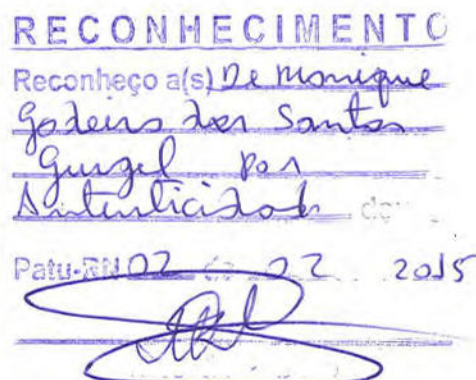 RECONHECIMENTO
Reconheço a(s) De Monique
Godeiro dos Santos
Gurgel Por
Autenticidade dou
Patu-RN 02 de 02 2015